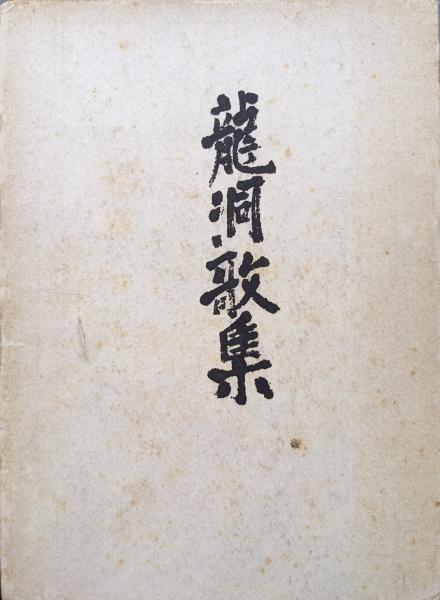 龍洞歌集